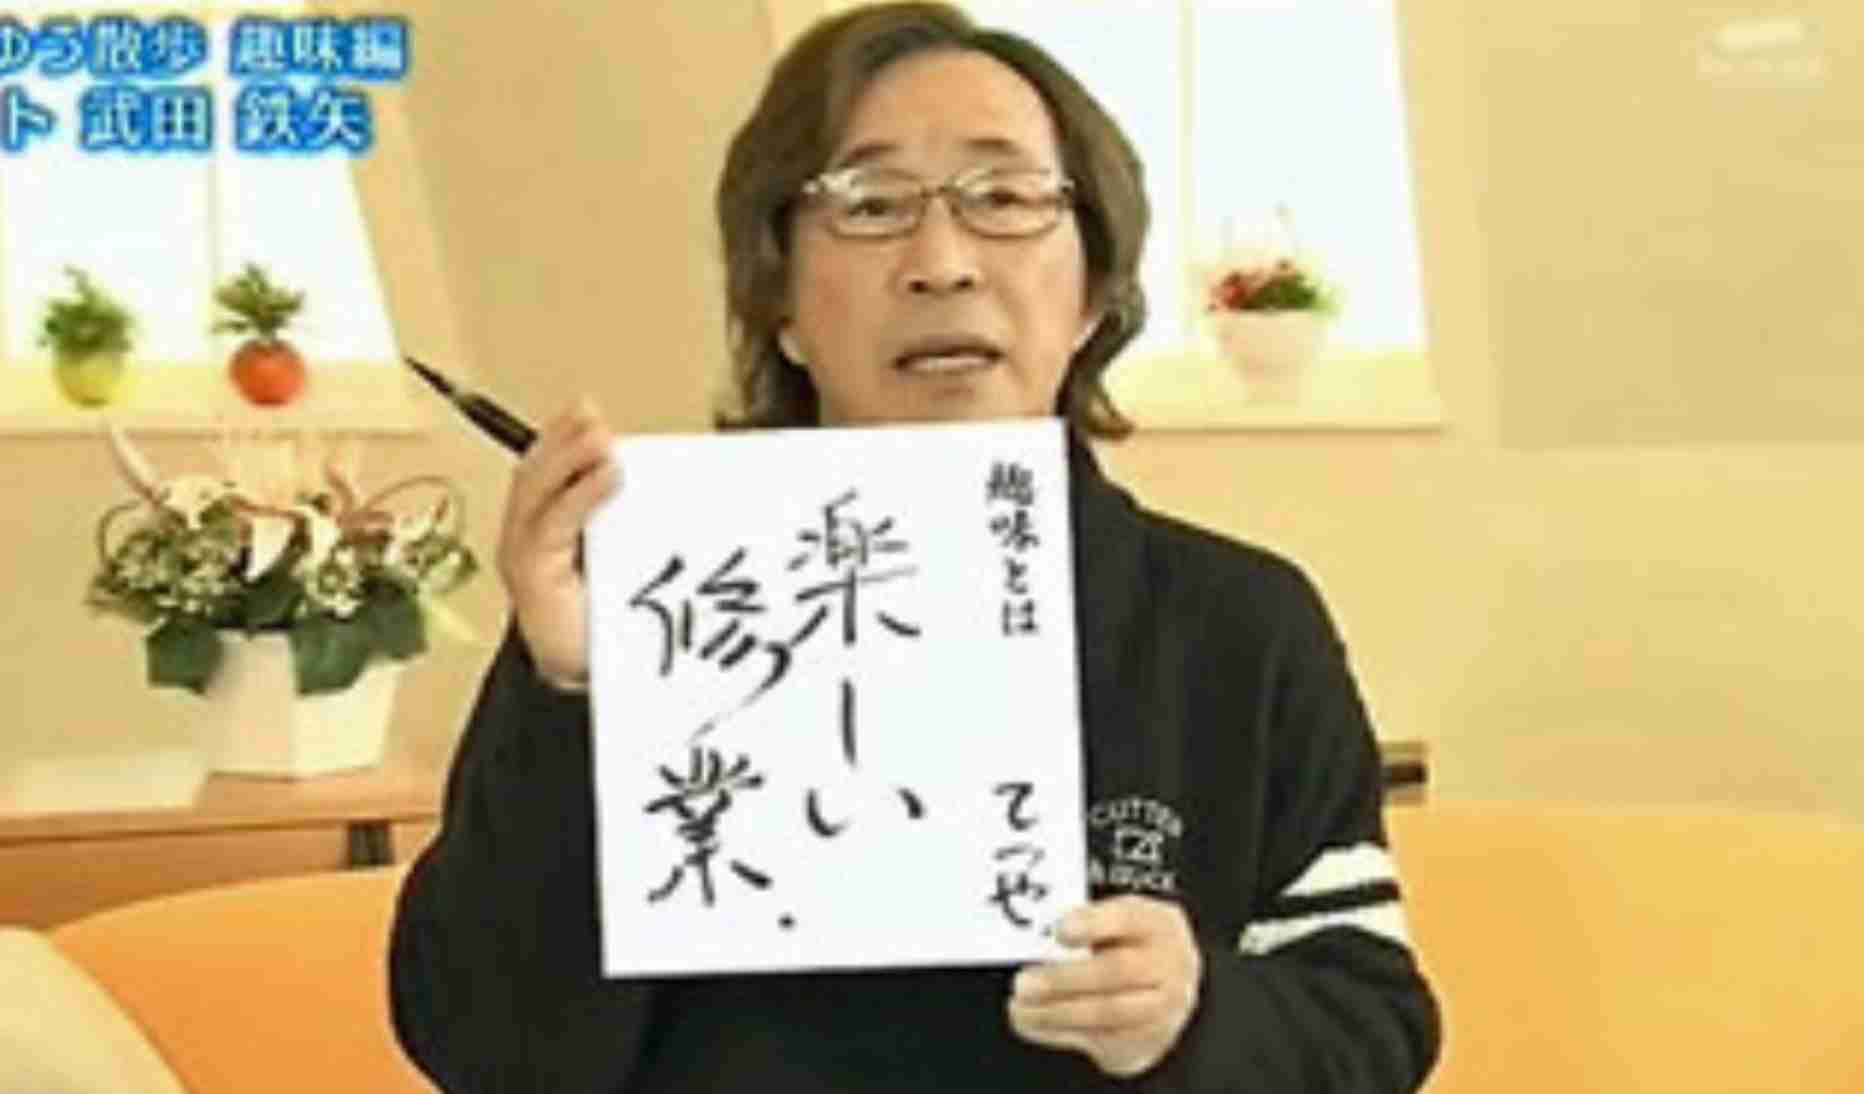 ゆう散歩 趣味編
ト 武田 鉄矢
趣味とは
楽しい
修業.
てつや.
CUTTER
& BUCK